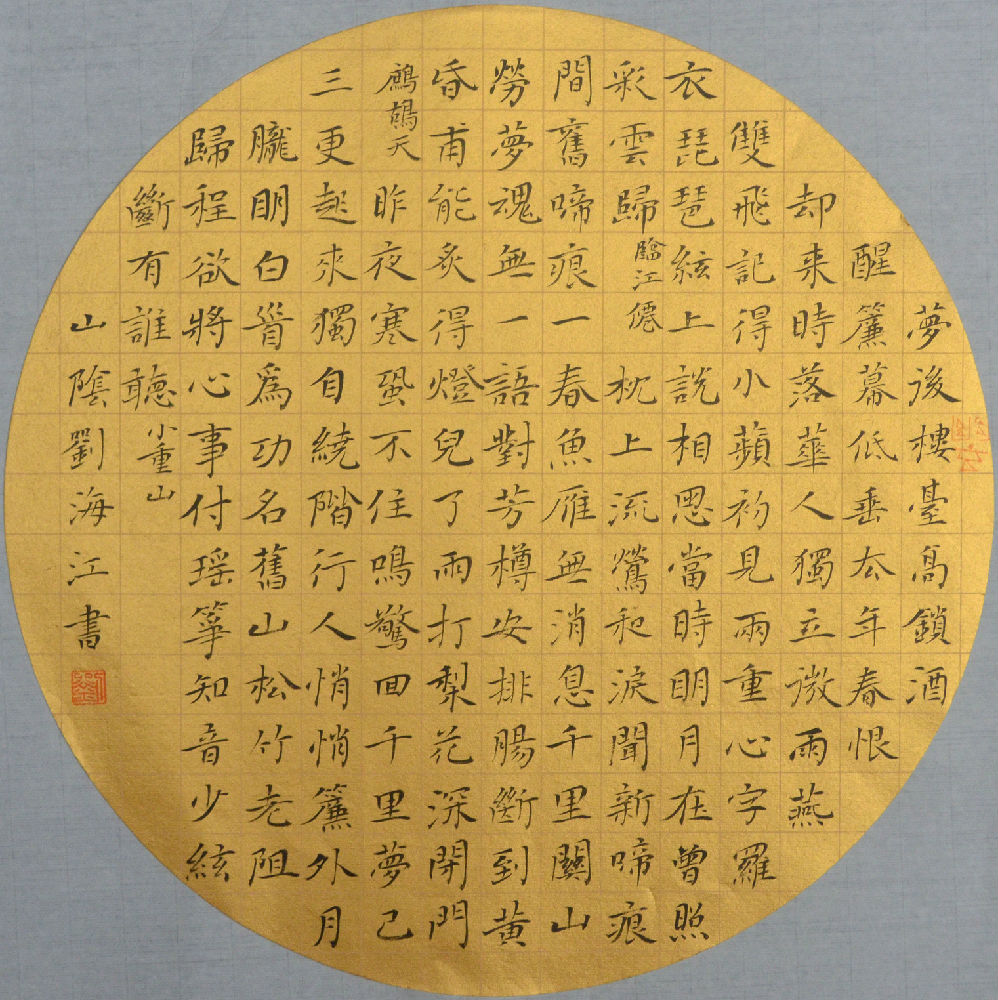 夢後樓臺高鎖酒
醒簾幕低垂去年春恨
却来時落華人獨立微雨燕
雙飛記得小蘋初見兩重心字羅
衣琵琶絃上說相思當時明月在曾照
彩雲歸臨江僊枕上流鶯和淚聞新啼痕
間舊啼痕一春魚雁無消息千里關山
勞夢魂無一語對芳樽安排腸斷到黃
昏甫能炙得燈兒了雨打梨花深閉門
鷓鴣天昨夜寒蛩不住鳴驚回千里夢已
三更起來獨自繞階行人悄悄簾外月
朧明白首爲功名舊山松竹老阻
歸程欲將心事付瑶箏知音少絃
斷有誰聽小重山
山陰劉海江書